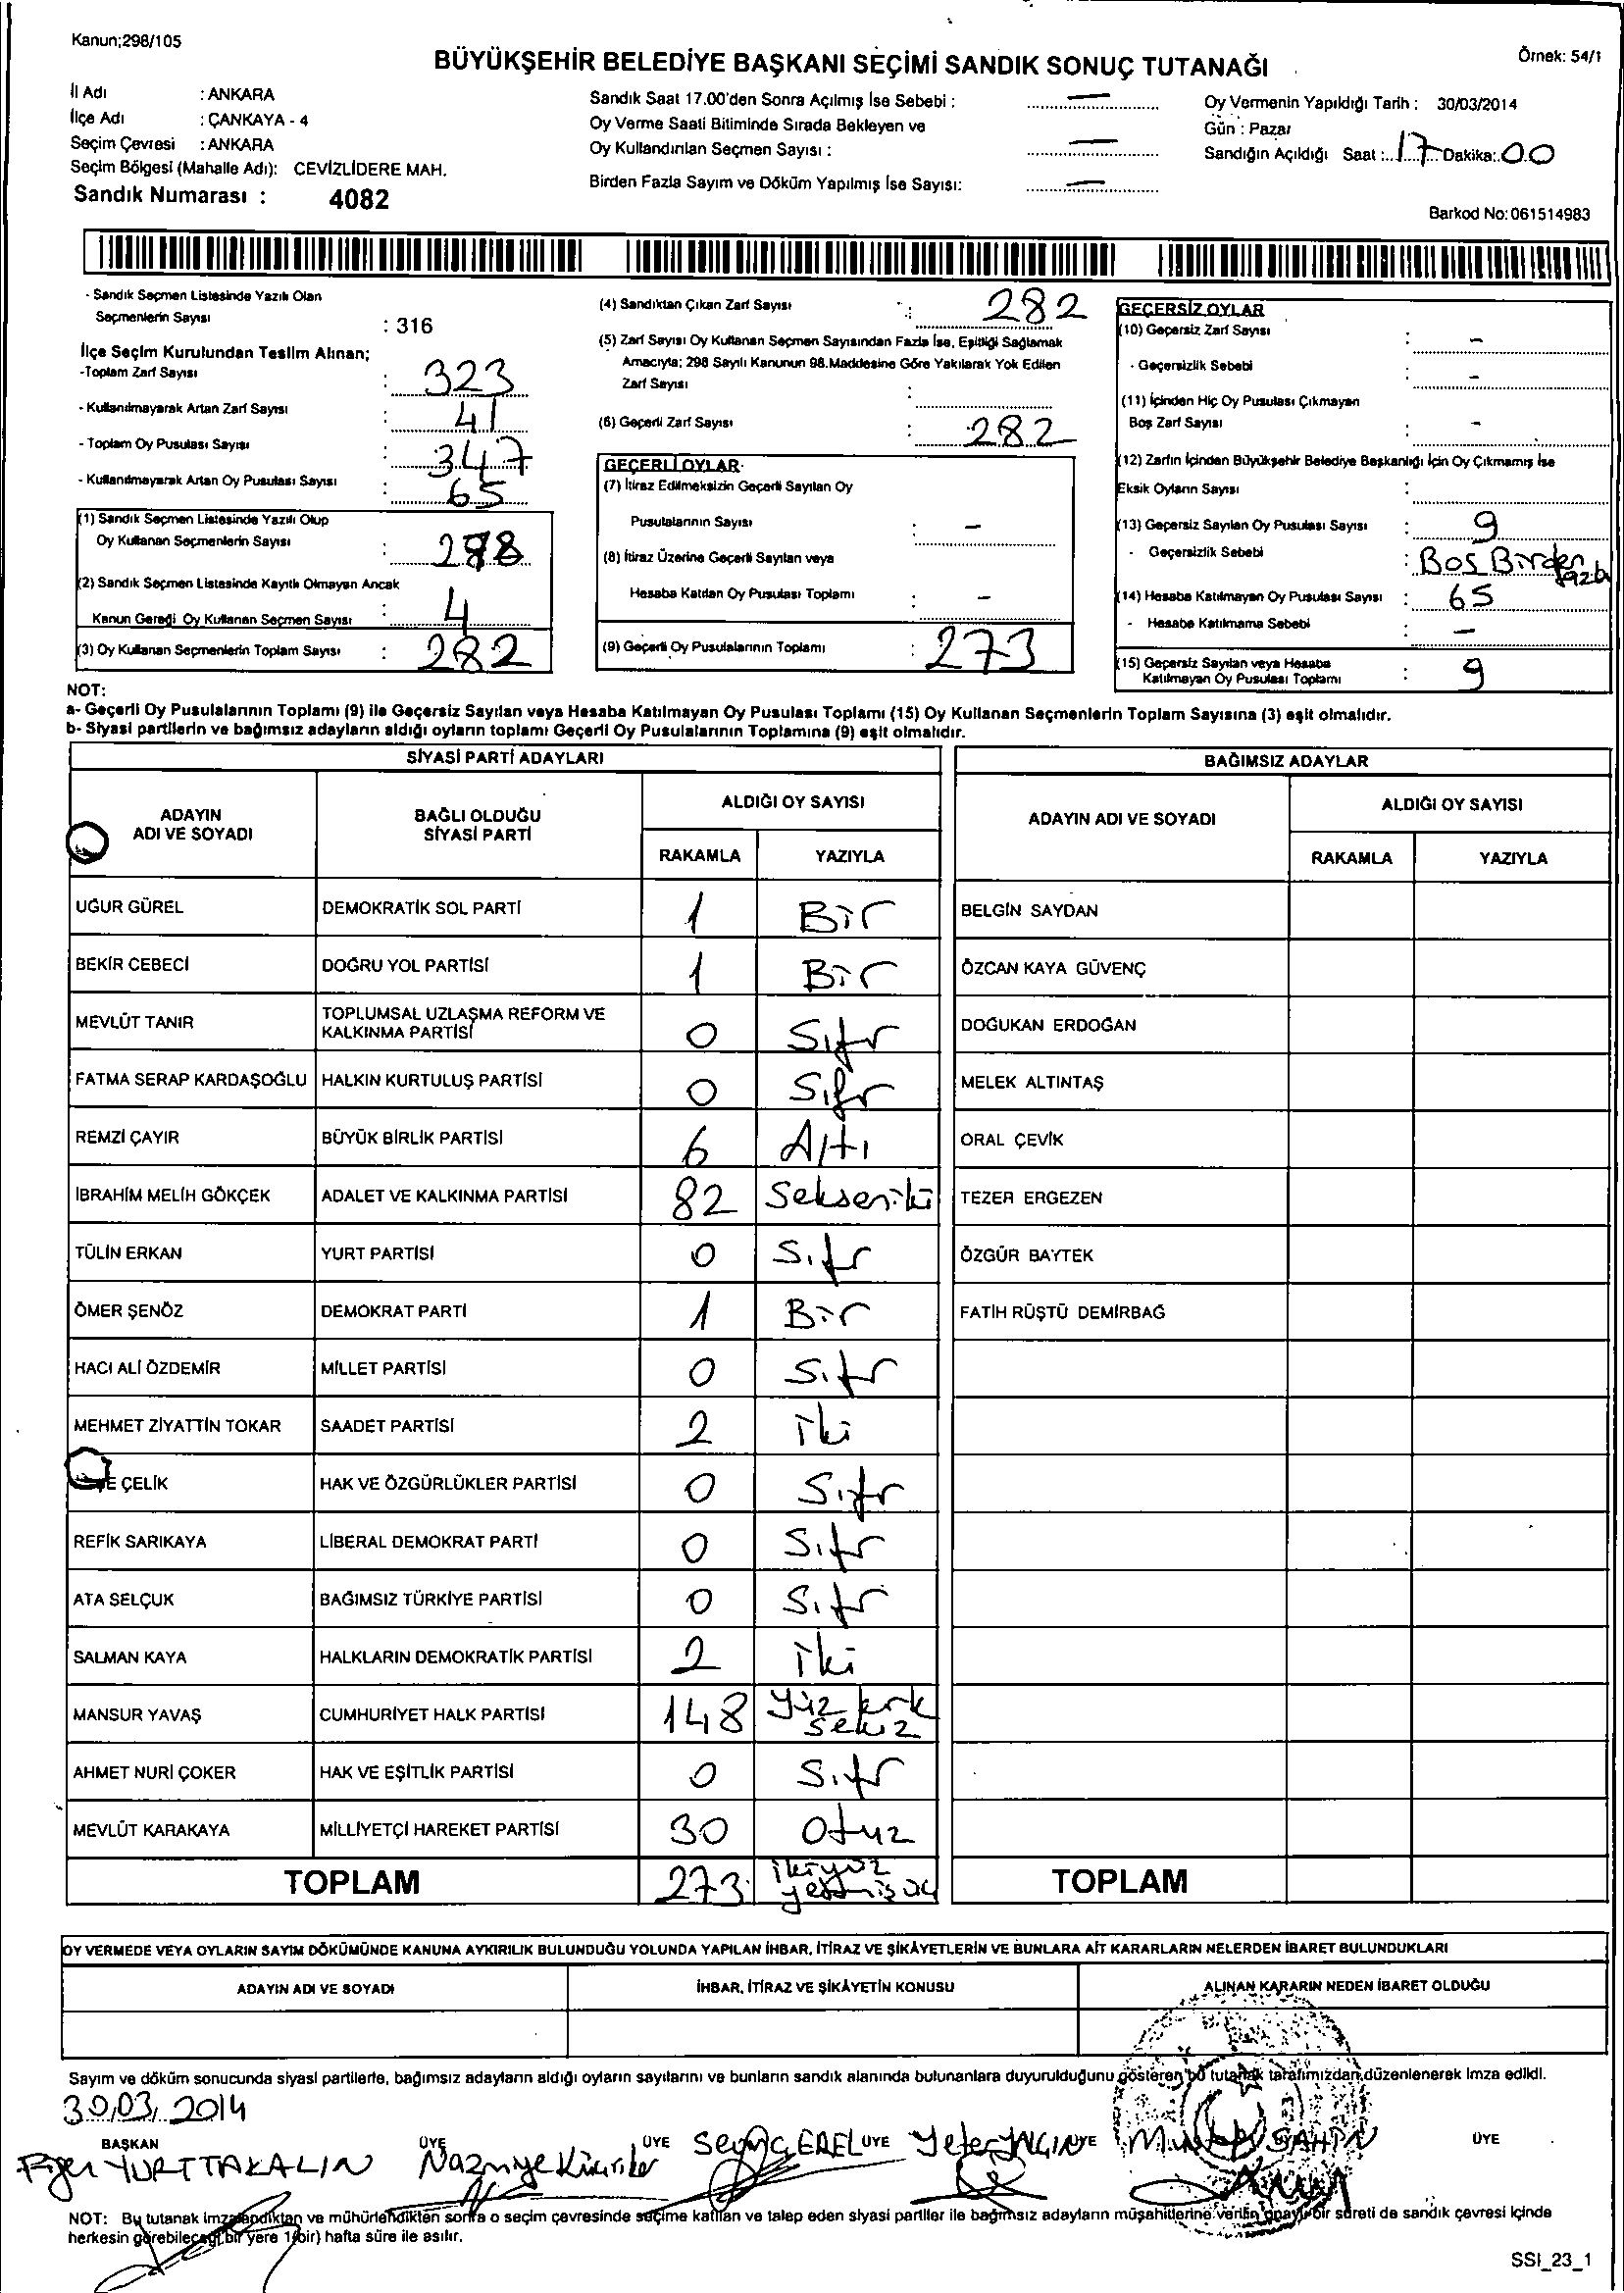 Kanun;298/105
BÜYÜKŞEHİR BELEDİYE BAŞKANI SEÇİMİ SANDIK SONUÇ TUTANAĞI
Örnek: 54/1
İl Adı : ANKARA
İlçe Adı : ÇANKAYA - 4
Seçim Çevresi : ANKARA
Seçim Bölgesi (Mahalle Adı): CEVİZLİDERE MAH.
Sandık Numarası : 4082
Sandık Saat 17.00'den Sonra Açılmış İse Sebebi : —
Oy Verme Saati Bitiminde Sırada Bekleyen ve
Oy Kullandırılan Seçmen Sayısı : —
Birden Fazla Sayım ve Döküm Yapılmış İse Sayısı: —
Oy Vermenin Yapıldığı Tarih : 30/03/2014
Gün : Pazar
Sandığın Açıldığı Saat : 17 Dakika: 00
Barkod No: 061514983
- Sandık Seçmen Listesinde Yazılı Olan
Seçmenlerin Sayısı : 316
İlçe Seçim Kurulundan Teslim Alınan;
-Toplam Zarf Sayısı : 323
- Kullanılmayarak Artan Zarf Sayısı : 41
- Toplam Oy Pusulası Sayısı : 347
- Kullanılmayarak Artan Oy Pusulası Sayısı : 65
(1) Sandık Seçmen Listesinde Yazılı Olup
Oy Kullanan Seçmenlerin Sayısı : 278
(2) Sandık Seçmen Listesinde Kayıtlı Olmayan Ancak
Kanun Gereği Oy Kullanan Seçmen Sayısı : 4
(3) Oy Kullanan Seçmenlerin Toplam Sayısı : 282
(4) Sandıktan Çıkan Zarf Sayısı : 282
(5) Zarf Sayısı Oy Kullanan Seçmen Sayısından Fazla İse, Eşitliği Sağlamak
Amacıyla; 298 Sayılı Kanunun 98.Maddesine Göre Yakılarak Yok Edilen
Zarf Sayısı :
(6) Geçerli Zarf Sayısı : 282
GEÇERLİ OYLAR
(7) İtiraz Edilmeksizin Geçerli Sayılan Oy
Pusulalarının Sayısı : -
(8) İtiraz Üzerine Geçerli Sayılan veya
Hesaba Katılan Oy Pusulası Toplamı : -
(9) Geçerli Oy Pusulalarının Toplamı : 273
GEÇERSİZ OYLAR
(10) Geçersiz Zarf Sayısı : -
- Geçersizlik Sebebi : -
(11) İçinden Hiç Oy Pusulası Çıkmayan
Boş Zarf Sayısı : -
(12) Zarfın İçinden Büyükşehir Belediye Başkanlığı İçin Oy Çıkmamış İse
Eksik Oyların Sayısı :
(13) Geçersiz Sayılan Oy Pusulası Sayısı : 9
- Geçersizlik Sebebi : Bos Birden fazla
(14) Hesaba Katılmayan Oy Pusulası Sayısı : 65
- Hesaba Katılmama Sebebi : -
(15) Geçersiz Sayılan veya Hesaba
Katılmayan Oy Pusulası Toplamı : 9
NOT:
a- Geçerli Oy Pusulalarının Toplamı (9) ile Geçersiz Sayılan veya Hesaba Katılmayan Oy Pusulası Toplamı (15) Oy Kullanan Seçmenlerin Toplam Sayısına (3) eşit olmalıdır.
b- Siyasi partilerin ve bağımsız adayların aldığı oyların toplamı Geçerli Oy Pusulalarının Toplamına (9) eşit olmalıdır.
SİYASİ PARTİ ADAYLARI
ADAYIN ADI VE SOYADI BAĞLI OLDUĞU SİYASİ PARTİ ALDIĞI OY SAYISI
RAKAMLA YAZIYLA
UĞUR GÜREL DEMOKRATİK SOL PARTİ 1 Bir
BEKİR CEBECİ DOĞRU YOL PARTİSİ 1 Bir
MEVLÜT TANIR TOPLUMSAL UZLAŞMA REFORM VE KALKINMA PARTİSİ 0 Sıfr
FATMA SERAP KARDAŞOĞLU HALKIN KURTULUŞ PARTİSİ 0 Sıfr
REMZİ ÇAYIR BÜYÜK BİRLİK PARTİSİ 6 Altı
İBRAHİM MELİH GÖKÇEK ADALET VE KALKINMA PARTİSİ 82 Sekseniki
TÜLİN ERKAN YURT PARTİSİ 0 Sıfr
ÖMER ŞENÖZ DEMOKRAT PARTİ 1 Bir
HACI ALİ ÖZDEMİR MİLLET PARTİSİ 0 Sıfr
MEHMET ZİYATTİN TOKAR SAADET PARTİSİ 2 iki
E ÇELİK HAK VE ÖZGÜRLÜKLER PARTİSİ 0 Sıfr
REFİK SARIKAYA LİBERAL DEMOKRAT PARTİ 0 Sıfr
ATA SELÇUK BAĞIMSIZ TÜRKİYE PARTİSİ 0 Sıfr
SALMAN KAYA HALKLARIN DEMOKRATİK PARTİSİ 2 iki
MANSUR YAVAŞ CUMHURİYET HALK PARTİSİ 148 Yüz kırk sekiz
AHMET NURİ ÇOKER HAK VE EŞİTLİK PARTİSİ 0 Sıfr
MEVLÜT KARAKAYA MİLLİYETÇİ HAREKET PARTİSİ 30 Otuz
TOPLAM 273 ikiyüz yetmişüç
BAĞIMSIZ ADAYLAR
ADAYIN ADI VE SOYADI ALDIĞI OY SAYISI
RAKAMLA YAZIYLA
BELGİN SAYDAN
ÖZCAN KAYA GÜVENÇ
DOĞUKAN ERDOĞAN
MELEK ALTINTAŞ
ORAL ÇEVİK
TEZER ERGEZEN
ÖZGÜR BAYTEK
FATİH RÜŞTÜ DEMİRBAĞ
TOPLAM
OY VERMEDE VEYA OYLARIN SAYIM DÖKÜMÜNDE KANUNA AYKIRILIK BULUNDUĞU YOLUNDA YAPILAN İHBAR, İTİRAZ VE ŞİKÂYETLERİN VE BUNLARA AİT KARARLARIN NELERDEN İBARET BULUNDUKLARI
ADAYIN ADI VE SOYADI İHBAR, İTİRAZ VE ŞİKÂYETİN KONUSU ALINAN KARARIN NEDEN İBARET OLDUĞU
Sayım ve döküm sonucunda siyasi partilerle, bağımsız adayların aldığı oyların sayılarını ve bunların sandık alanında bulunanlara duyurulduğunu gösteren bu tutanak tarafımızdan düzenlenerek imza edildi.
30.03.2014
BAŞKAN ÜYE ÜYE ÜYE ÜYE ÜYE
YURTTAKALIN Nazmiye Sevinç EREL Yeter YALÇIN Mustafa ŞAHİN
NOT: Bu tutanak imzalandıktan ve mühürlendikten sonra o seçim çevresinde seçime katılan ve talep eden siyasi partiler ile bağımsız adayların müşahitlerine verilir, onaylı bir sureti de sandık çevresi içinde
herkesin görebileceği bir yere 1(bir) hafta süre ile asılır.
SSI_23_1